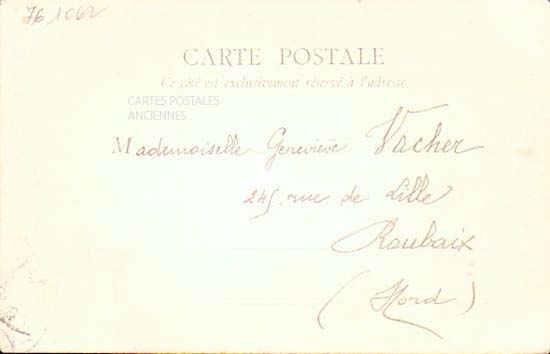 76 1062
CARTE POSTALE
Ce côté est exclusivement réservé à l'adresse
CARTES POSTALES
ANCIENNES
Mademoiselle Geneviève Vacher
245, rue de Lille
Roubaix
(Nord)